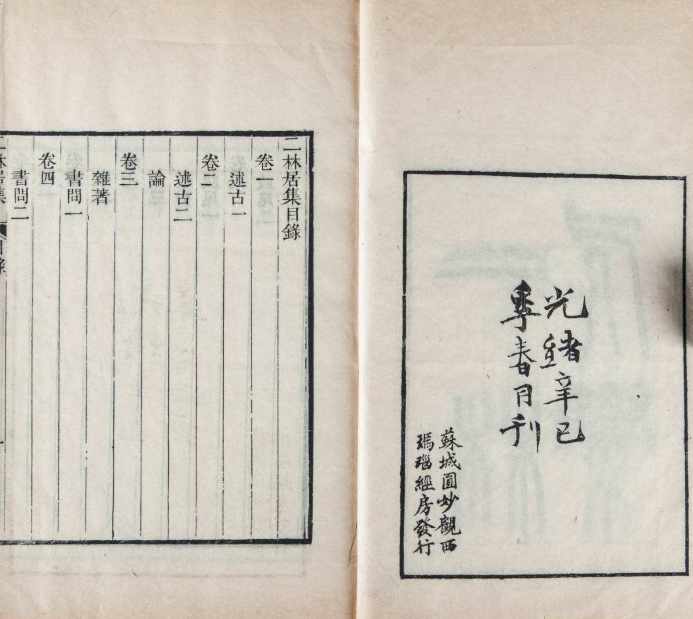 光緒辛巳
季春月刊
蘇城圓妙觀西
瑪瑙經房發行
二林居集目錄
卷一
述古一
卷二
述古二
論
卷三
雜著
書問一
卷四
書問二
二林居集 目錄